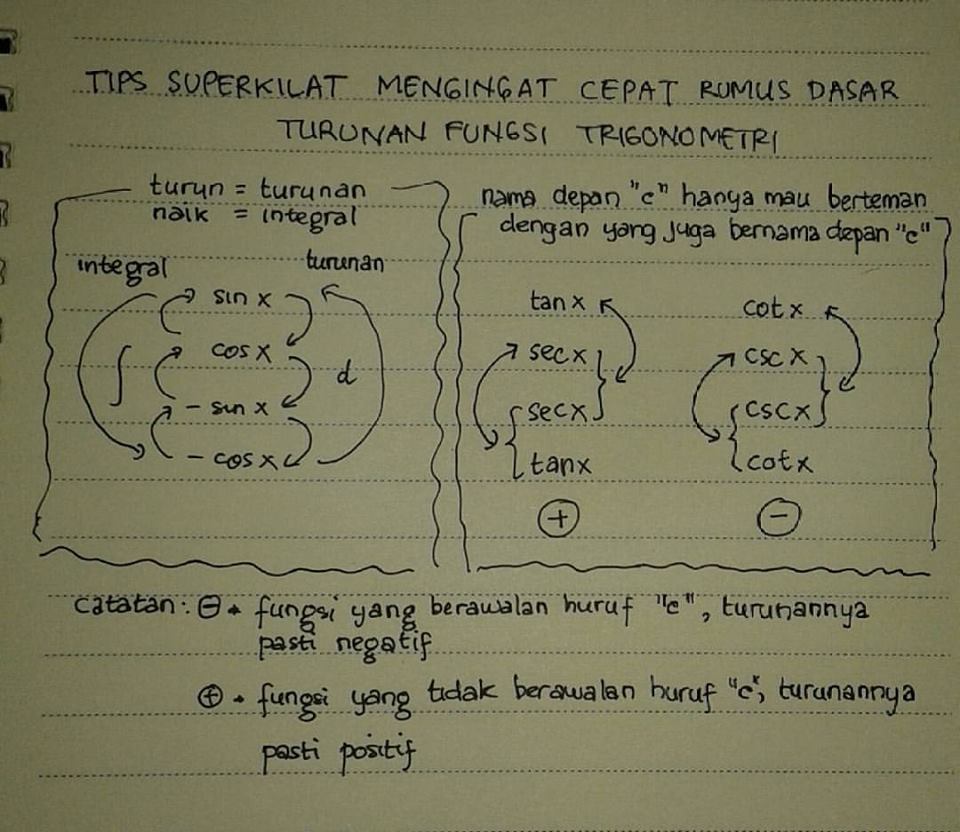 TIPS SUPERKILAT MENGINGAT CEPAT RUMUS DASAR
TURUNAN FUNGSI TRIGONOMETRI
turun = turunan
naik = integral
integral turunan
sin x
cos x
∫ d
- sin x
- cos x
nama depan "c" hanya mau berteman
dengan yang juga bernama depan "c"
tan x
sec x
sec x
tan x
+
cot x
csc x
csc x
cot x
-
catatan: ⊖ • fungsi yang berawalan huruf "c", turunannya
pasti negatif
⊕ • fungsi yang tidak berawalan huruf "c", turunannya
pasti positif